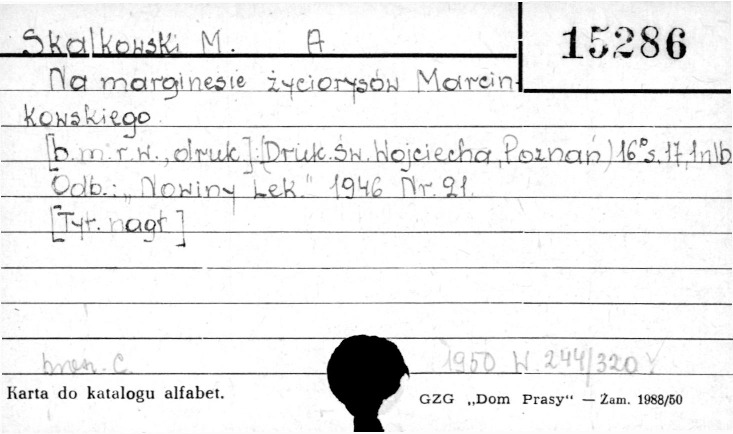 Skalkowski M. A
15286
Na marginesie życiorysów Marcin-
kowskiego
[b.m.r.w., druk]:(Druk. św. Wojciecha, Poznań) 16° s. 17, 1 nlb
Odb.: „Nowiny Lek." 1946 Nr. 21.
[Tyt. nagł.]
bnor. C. 1950 W. 244/320
Karta do katalogu alfabet.
GZG „Dom Prasy“ — Zam. 1988/50